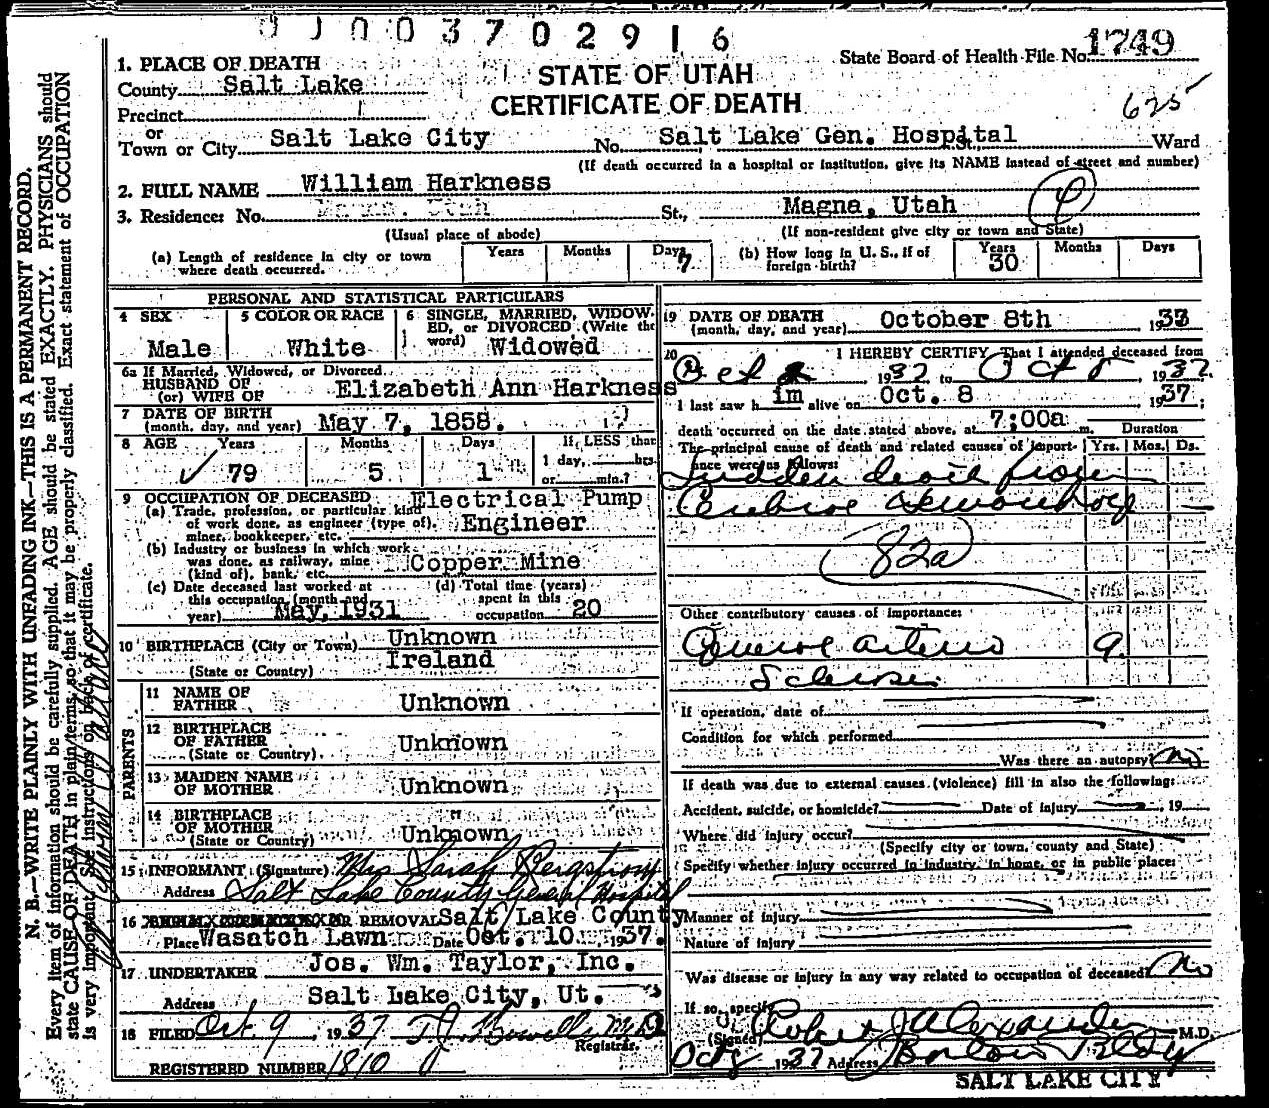 0 J 0 0 3 7 0 2 9 1 6
State Board of Health File No. 1749
1. PLACE OF DEATH
County Salt Lake
STATE OF UTAH
CERTIFICATE OF DEATH
625
Precinct
or
Town or City Salt Lake City No. Salt Lake Gen. Hospital St., Ward
(If death occurred in a hospital or institution, give its NAME instead of street and number)
2. FULL NAME William Harkness
3. Residence: No. St., Magna, Utah
(Usual place of abode) (If non-resident give city or town and State)
(a) Length of residence in city or town where death occurred. Years Months Days 7 (b) How long in U. S., if of foreign birth? Years 30 Months Days
PERSONAL AND STATISTICAL PARTICULARS
4 SEX Male
5 COLOR OR RACE White
6 SINGLE, MARRIED, WIDOWED, or DIVORCED (Write the word) Widowed
6a If Married, Widowed, or Divorced
HUSBAND OF
(or) WIFE OF Elizabeth Ann Harkness
7 DATE OF BIRTH
(month, day, and year) May 7, 1858.
8 AGE Years 79 Months 5 Days 1 If LESS than 1 day, hrs. or min.?
9 OCCUPATION OF DECEASED Electrical Pump
(a) Trade, profession, or particular kind
of work done, as engineer (type of), Engineer
miner, bookkeeper, etc.
(b) Industry or business in which work
was done, as railway, mine Copper Mine
(kind of), bank, etc.
(c) Date deceased last worked at this occupation (month and year) May, 1931
(d) Total time (years) spent in this occupation 20
10 BIRTHPLACE (City or Town) Unknown
(State or Country) Ireland
PARENTS
11 NAME OF FATHER Unknown
12 BIRTHPLACE OF FATHER Unknown
(State or Country)
13 MAIDEN NAME OF MOTHER Unknown
14 BIRTHPLACE OF MOTHER Unknown
(State or Country)
15 INFORMANT (Signature) Mrs Sarah Bergstrom
Address Salt Lake County General Hospital
16 OR REMOVAL Salt Lake County
Place Wasatch Lawn Date Oct. 10 1937.
17 UNDERTAKER Jos. Wm. Taylor, Inc.
Address Salt Lake City, Ut.
18 FILED Oct. 9, 1937 M.D.
Registrar.
REGISTERED NUMBER 1810
19 DATE OF DEATH
(month, day, and year) October 8th 1937
20 I HEREBY CERTIFY, That I attended deceased from
Oct 2 1937 to Oct 8, 1937.
I last saw him alive on Oct. 8 1937;
death occurred on the date stated above, at 7;00a m. Duration
The principal cause of death and related causes of importance were as follows: Yrs. Mos. Ds.
Sudden death from
Cerebral Hemorrhage
82a
Other contributory causes of importance:
General arterio 9.
Sclerosis
If operation, date of
Condition for which performed
Was there an autopsy? No
If death was due to external causes (violence) fill in also the following:
Accident, suicide, or homicide? Date of injury , 19
Where did injury occur?
(Specify city or town, county and State)
Specify whether injury occurred in industry, in home, or in public place:
Manner of injury
Nature of injury
Was disease or injury in any way related to occupation of deceased? No
If so, specify
(Signed) Robert J Alexander M.D.
Oct 8 1937 Address Boston Bldg
SALT LAKE CITY
N. B.—WRITE PLAINLY WITH UNFADING INK—THIS IS A PERMANENT RECORD.
Every item of information should be carefully supplied. AGE should be stated EXACTLY. PHYSICIANS should
state CAUSE OF DEATH in plain terms, so that it may be properly classified. Exact statement of OCCUPATION
is very important. See instructions on back of certificate.